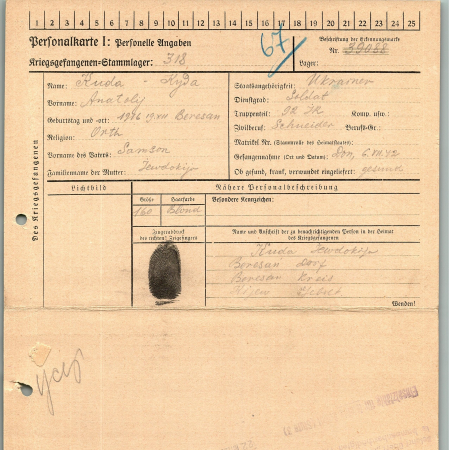 1 2 3 4 5 6 7 8 9 10 11 12 13 14 15 16 17 18 19 20 21 22 23 24 25
Personalkarte I: Personelle Angaben
67
Beschriftung der Erkennungsmarke
Nr. 39088
Kriegsgefangenen-Stammlager: 318
Lager:
Des Kriegsgefangenen
Name: Kuda - Куда
Vorname: Anatolij
Geburtstag und -ort: Beresan
Religion: Orth
Vorname des Vaters: Samson
Familienname der Mutter: Jewdokija
Staatsangehörigkeit: Ukrainer
Dienstgrad: Soldat
Truppenteil: 92 IR Komp. usw.:
Zivilberuf: Schneider Berufs-Gr.:
Matrikel Nr. (Stammrolle des Heimatstaates):
Gefangennahme (Ort und Datum): Don, 6.VII.42
Ob gesund, krank, verwundet eingeliefert: gesund
Lichtbild
Nähere Personalbeschreibung
Größe Haarfarbe
160 Blond
Besondere Kennzeichen:
Fingerabdruck
des rechten! Zeigefingers
Name und Anschrift der zu benachrichtigenden Person in der Heimat
des Kriegsgefangenen
Kuda Jewdokija
Beresan Dorf
Beresan Kreis
Kijew Gebiet
Wenden!